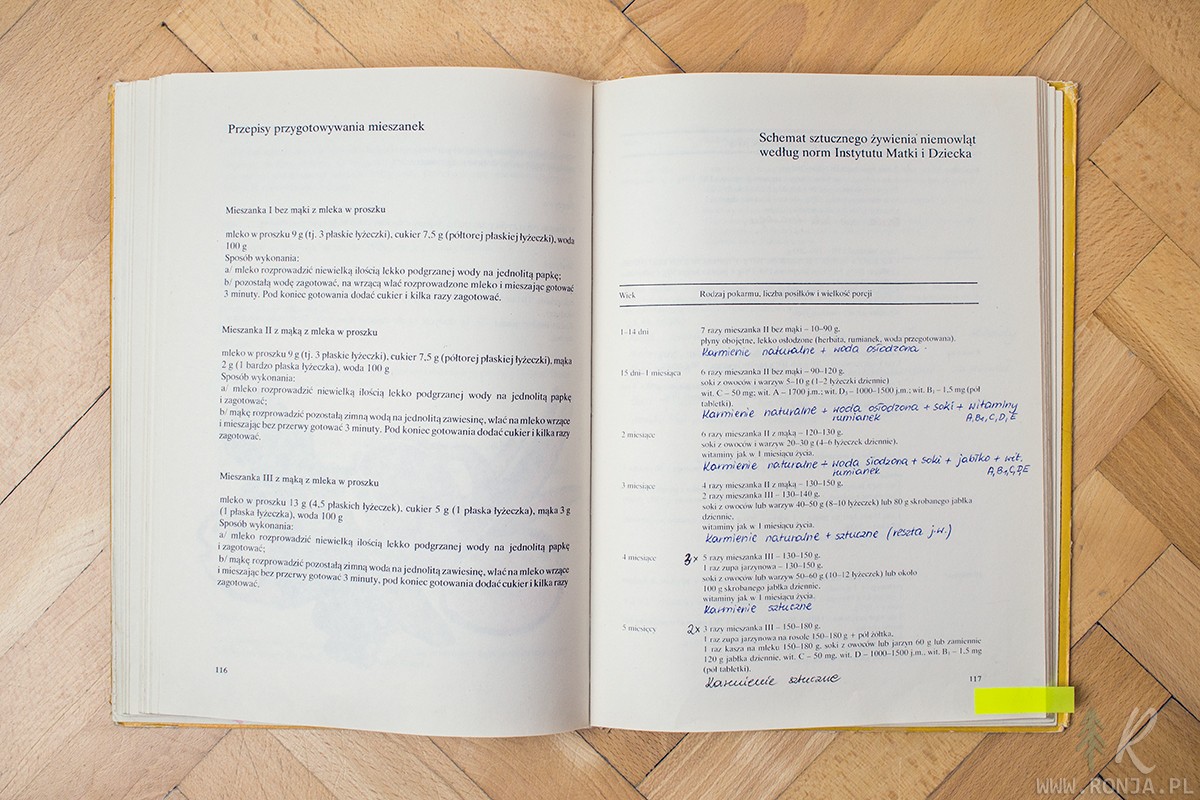 Przepisy przygotowywania mieszanek
Mieszanka I bez mąki z mleka w proszku
mleko w proszku 9 g (tj. 3 płaskie łyżeczki), cukier 7,5 g (półtorej płaskiej łyżeczki), woda
100 g
Sposób wykonania:
a/ mleko rozprowadzić niewielką ilością lekko podgrzanej wody na jednolitą papkę;
b/ pozostałą wodę zagotować, na wrzącą wlać rozprowadzone mleko i mieszając gotować
3 minuty. Pod koniec gotowania dodać cukier i kilka razy zagotować.
Mieszanka II z mąką z mleka w proszku
mleko w proszku 9 g (tj. 3 płaskie łyżeczki), cukier 7,5 g (półtorej płaskiej łyżeczki), mąka
2 g (1 bardzo płaska łyżeczka), woda 100 g
Sposób wykonania:
a/ mleko rozprowadzić niewielką ilością lekko podgrzanej wody na jednolitą papkę
i zagotować;
b/ mąkę rozprowadzić pozostałą zimną wodą na jednolitą zawiesinę, wlać na mleko wrzące
i mieszając bez przerwy gotować 3 minuty. Pod koniec gotowania dodać cukier i kilka razy
zagotować.
Mieszanka III z mąką z mleka w proszku
mleko w proszku 13 g (4,5 płaskich łyżeczek), cukier 5 g (1 płaska łyżeczka), mąka 3 g
(1 płaska łyżeczka), woda 100 g
Sposób wykonania:
a/ mleko rozprowadzić niewielką ilością lekko podgrzanej wody na jednolitą papkę
i zagotować;
b/ mąkę rozprowadzić pozostałą zimną wodą na jednolitą zawiesinę, wlać na mleko wrzące
i mieszając bez przerwy gotować 3 minuty, pod koniec gotowania dodać cukier i kilka razy
zagotować.
116
Schemat sztucznego żywienia niemowląt
według norm Instytutu Matki i Dziecka
Wiek Rodzaj pokarmu, liczba posiłków i wielkość porcji
1–14 dni 7 razy mieszanka II bez mąki – 10–90 g,
płyny obojętne, lekko osłodzone (herbata, rumianek, woda przegotowana).
Karmienie naturalne + woda osłodzona.
15 dni–1 miesiąca 6 razy mieszanka II bez mąki – 90–120 g,
soki z owoców i warzyw 5–10 g (1–2 łyżeczki dziennie)
wit. C – 50 mg; wit. A – 1700 j.m.; wit. D₃ – 1000–1500 j.m.; wit. B₁ – 1,5 mg (pół
tabletki).
Karmienie naturalne + woda osłodzona + soki + witaminy
rumianek A, B₁, C, D, E
2 miesiące 6 razy mieszanka II z mąką – 120–130 g,
soki z owoców i warzyw 20–30 g (4–6 łyżeczek dziennie),
witaminy jak w 1 miesiącu życia.
Karmienie naturalne + woda słodzona + soki + jabłko + wit.
rumianek A, B₁, C, D, E
3 miesiące 4 razy mieszanka II z mąką – 130–150 g,
2 razy mieszanka III – 130–140 g,
soki z owoców lub warzyw 40–50 g (8–10 łyżeczek) lub 80 g skrobanego jabłka
dziennie,
witaminy jak w 1 miesiącu życia.
Karmienie naturalne + sztuczne (reszta j.w.)
4 miesiące 3x 5 razy mieszanka III – 130–150 g,
1 raz zupa jarzynowa – 130–150 g,
soki z owoców lub warzyw 50–60 g (10–12 łyżeczek) lub około
100 g skrobanego jabłka dziennie,
witaminy jak w 1 miesiącu życia.
Karmienie sztuczne
5 miesięcy 2x 3 razy mieszanka III – 150–180 g,
1 raz zupa jarzynowa na rosole 150–180 g + pół żółtka,
1 raz kasza na mleku 150–180 g, soki z owoców lub jarzyn 60 g lub zamiennie
120 g jabłka dziennie, wit. C – 50 mg, wit. D – 1000–1500 j.m., wit. B₁ – 1,5 mg
(pół tabletki).
Karmienie sztuczne
117
R
WWW.RONJA.PL